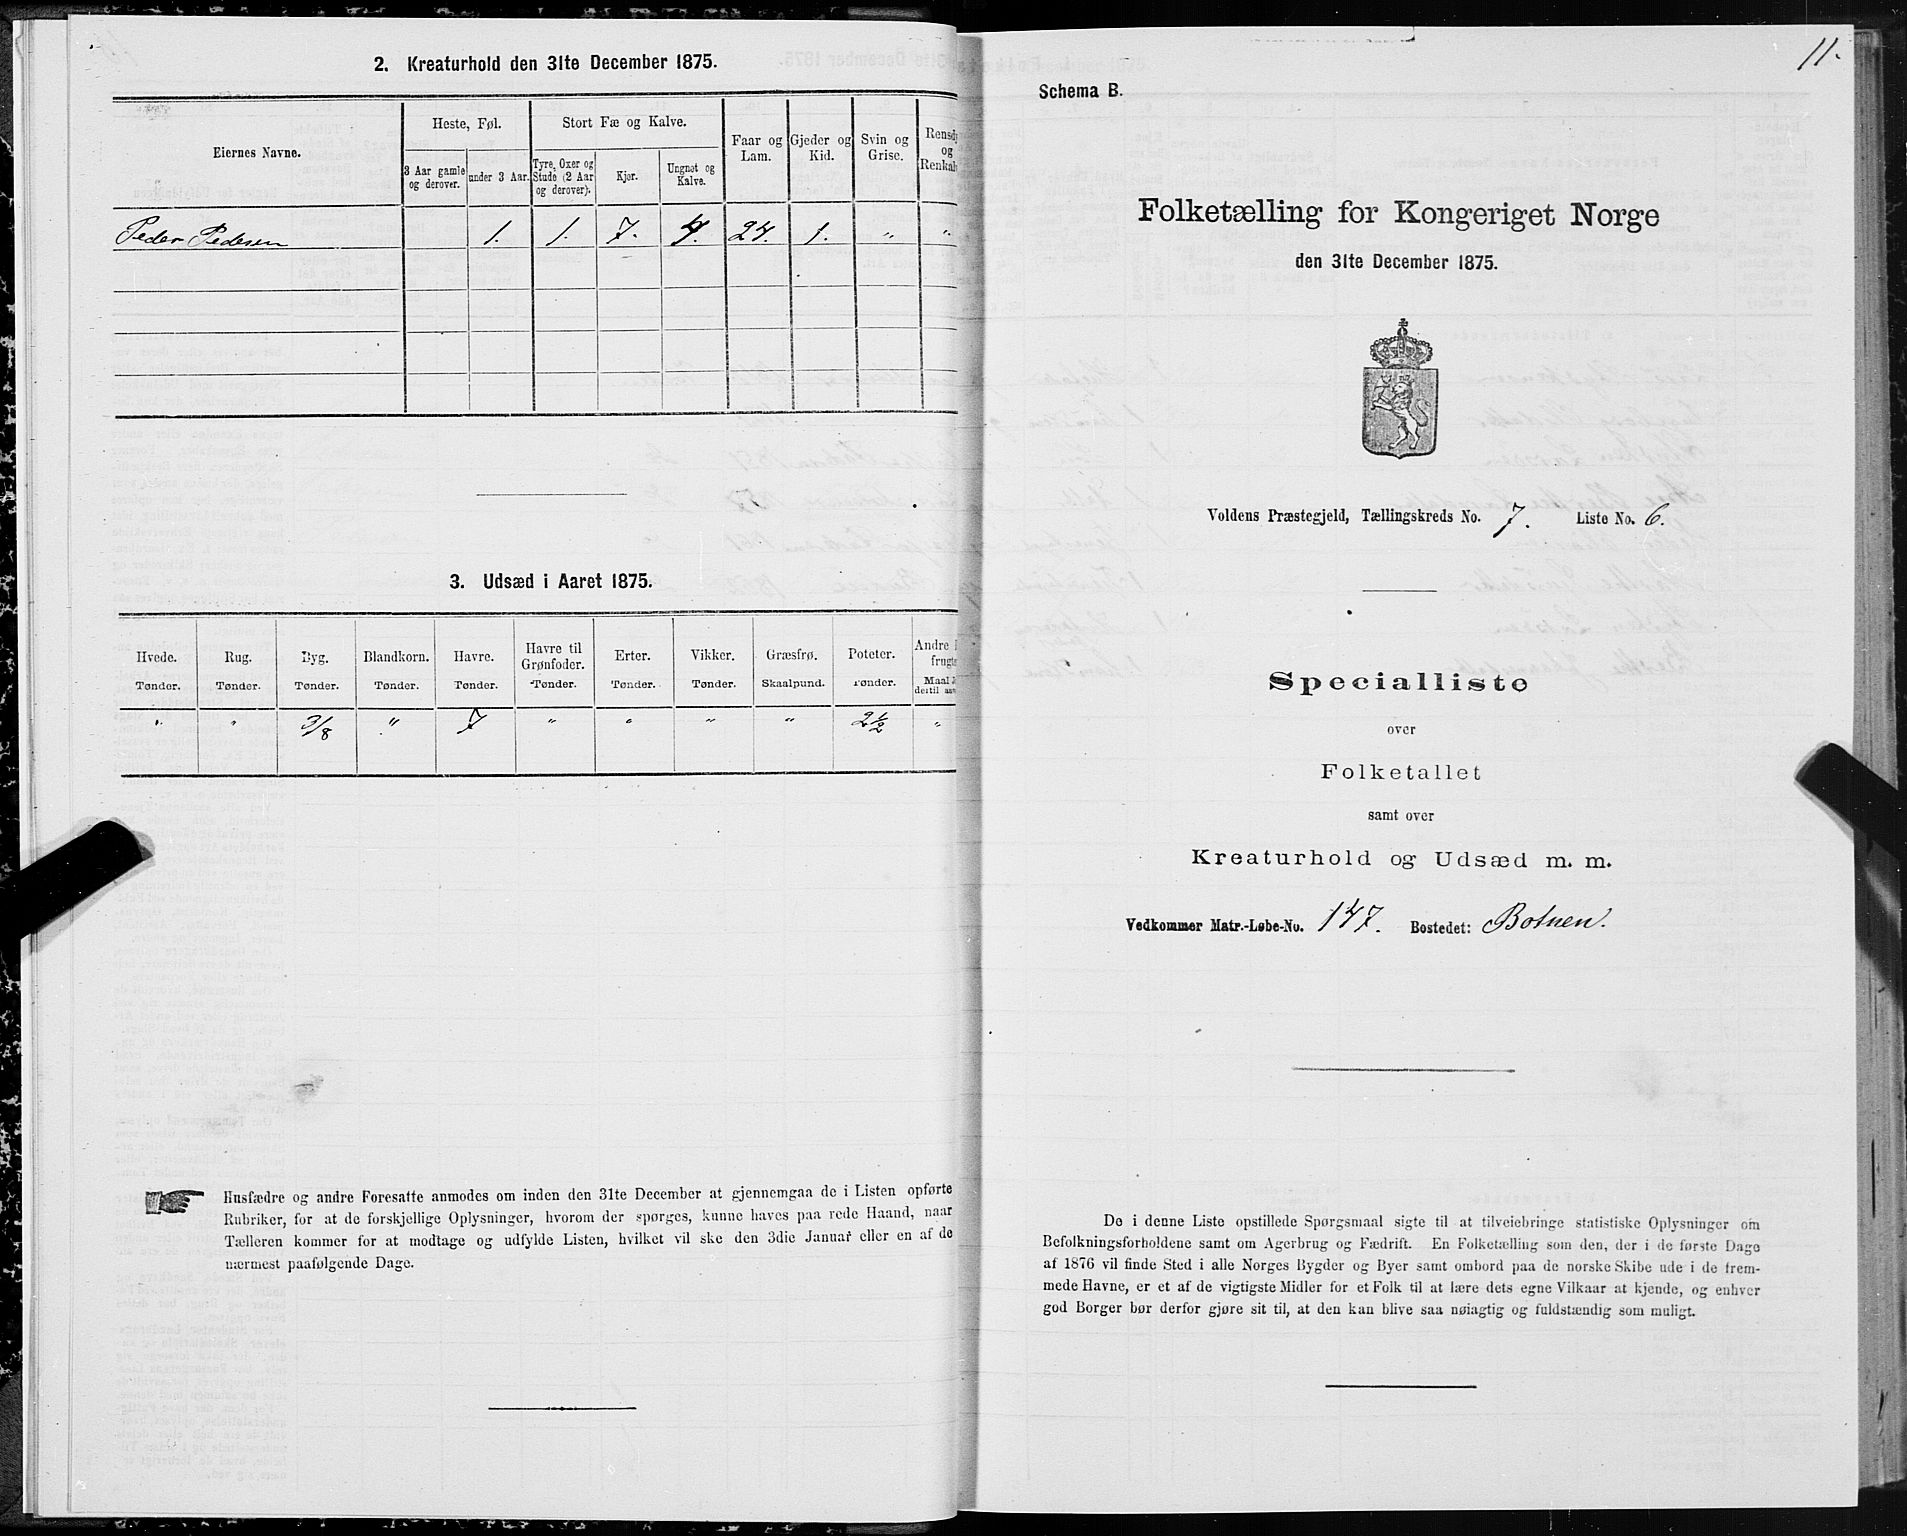 2. Kreaturhold den 31te December 1875.
Eiernes Navne.
Heste, Føl.
Stort Fæ og Kalve.
Faar og Lam.
Gjeder og Kid.
Svin og Grise.
Rensd
og
Renkal
3 Aar gamle og derover.
under 3 Aar.
Tyre, Oxer og Stude (2 Aar og derover).
Kjør.
Ungnøt og Kalve.
Peder Pedersen 1. 1. 7. 4. 24. 1. " "
3. Udsæd i Aaret 1875.
Hvede. Rug. Byg. Blandkorn. Havre. Havre til Grønfoder. Erter. Vikker. Græsfrø. Poteter. Andre
frugt
Tønder. Tønder. Tønder. Tønder. Tønder. Tønder. Tønder. Tønder. Skaalpund. Tønder. Maal
destil
" " 3/8 " 7 " " " " 2 1/2 "
Husfædre og andre Foresatte anmodes om inden den 31te December at gjennemgaa de i Listen opførte
Rubriker, for at de forskjellige Oplysninger, hvorom der spørges, kunne haves paa rede Haand, naar
Tælleren kommer for at modtage og udfylde Listen, hvilket vil ske den 3die Januar eller en af de
nærmest paafølgende Dage.
11.
Schema B.
Folketælling for Kongeriget Norge
den 31te December 1875.
Voldens Præstegjeld, Tællingskreds No. 7. Liste No. 6.
Specialliste
over
Folketallet
samt over
Kreaturhold og Udsæd m. m.
Vedkommer Matr.-Løbe-No. 147. Bostedet: Botnen.
De i denne Liste opstillede Spørgsmaal sigte til at tilveiebringe statistiske Oplysninger om
Befolkningsforholdene samt om Agerbrug og Fædrift. En Folketælling som den, der i de første Dage
af 1876 vil finde Sted i alle Norges Bygder og Byer samt ombord paa de norske Skibe ude i de frem-
mede Havne, er et af de vigtigste Midler for et Folk til at lære dets egne Vilkaar at kjende, og enhver
god Borger bør derfor gjøre sit til, at den kan blive saa nøiagtig og fuldstændig som muligt.